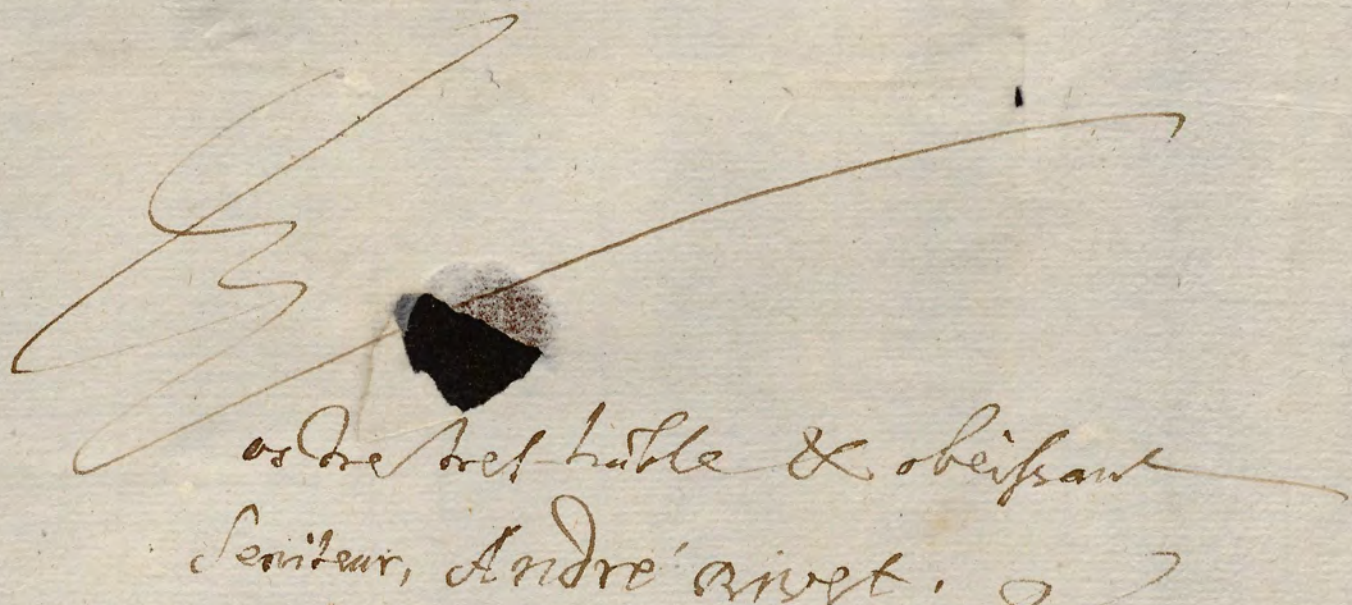 vostre tres-hũble & obeissant
seruiteur, André Rivet.